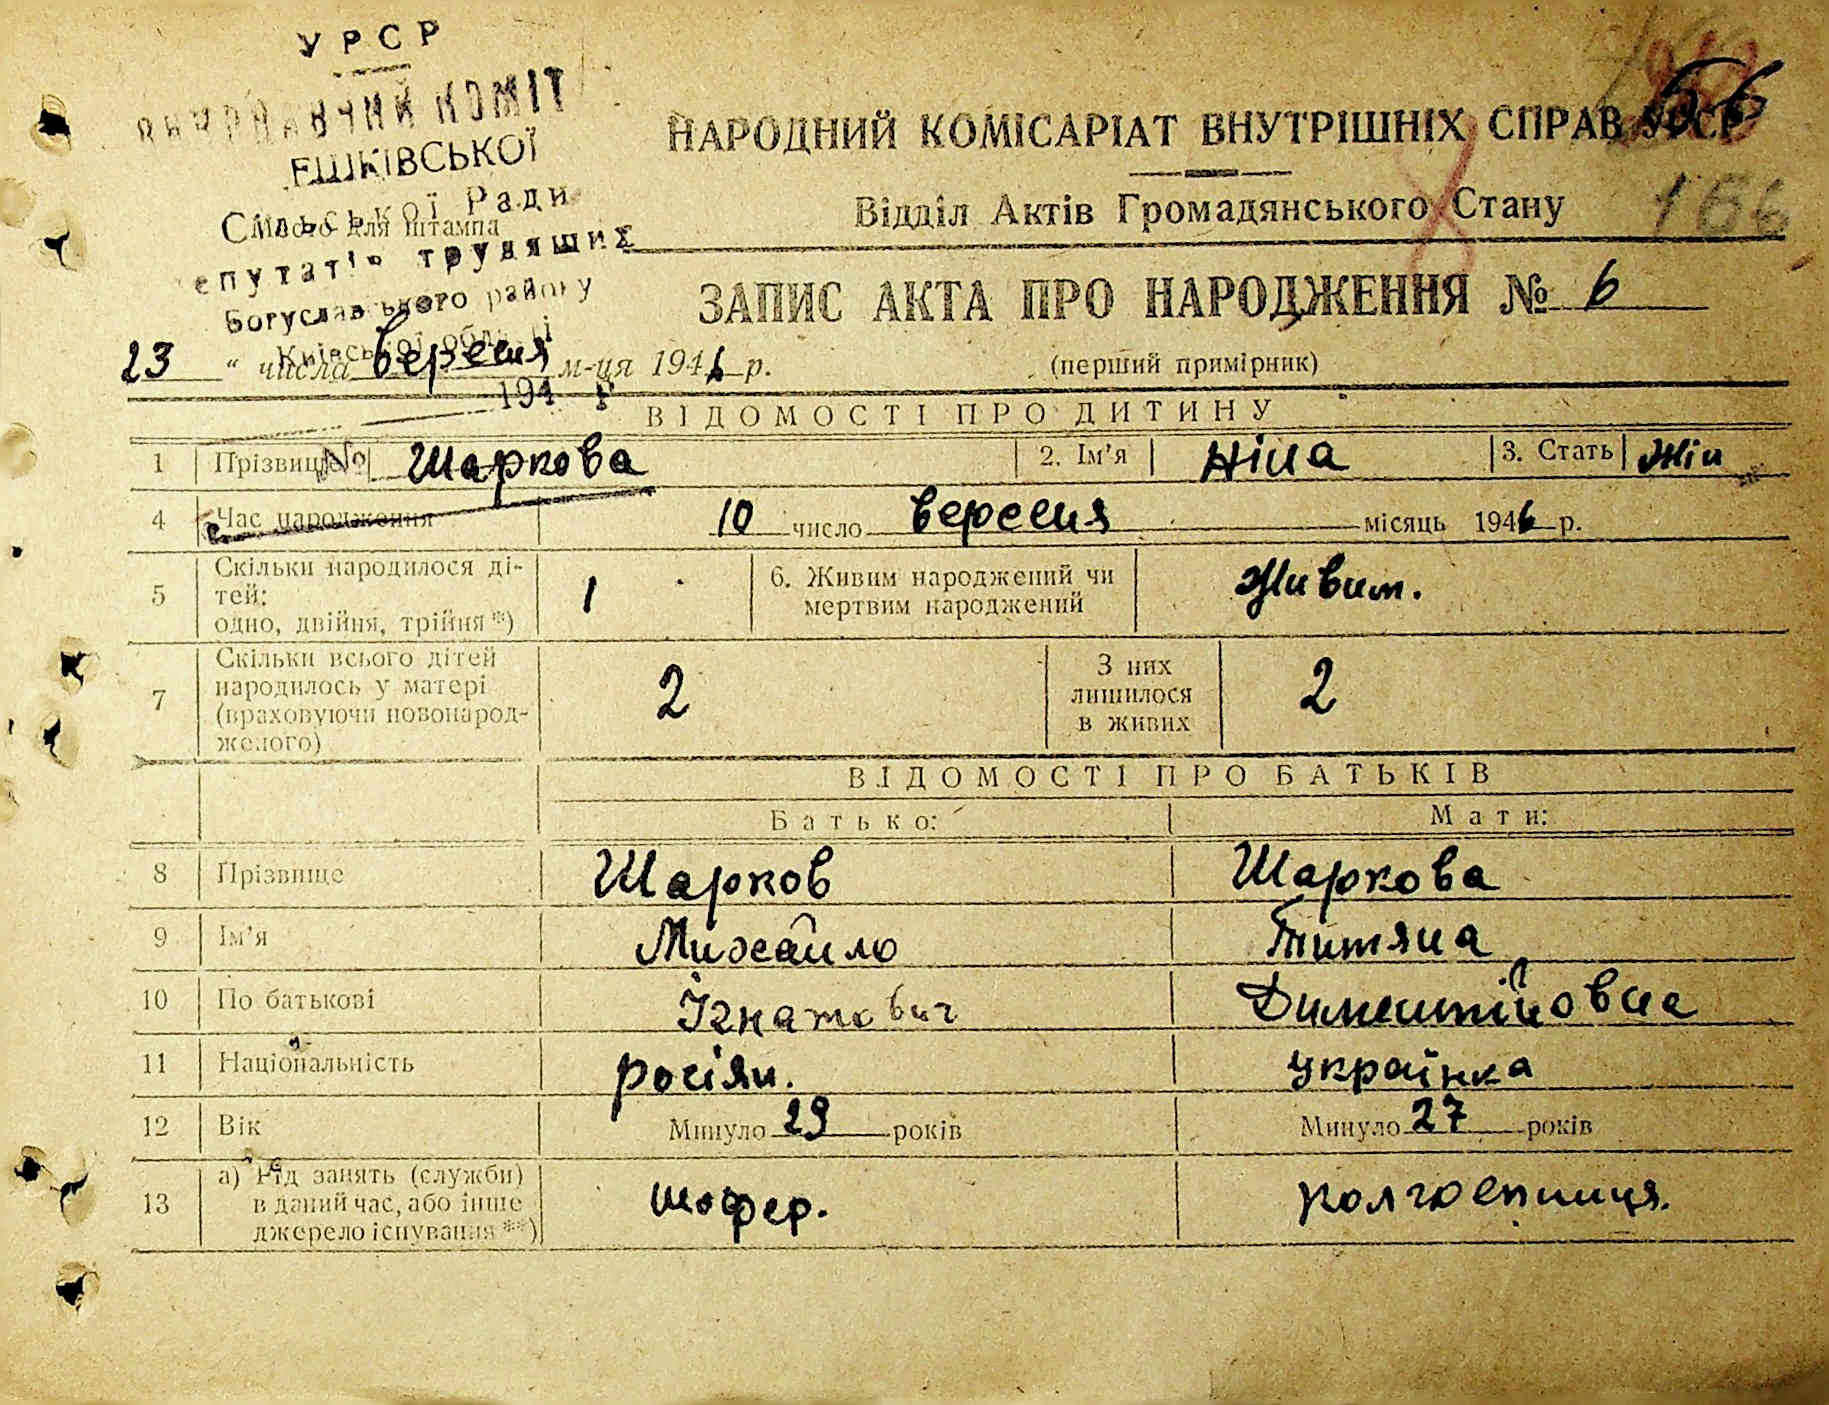 УРСР
ЕШКІВСЬКОЇ
Сільської Ради
Місце для штампа
епутатів трудящих
Богуславського району
Київської області
194 р
56
166
НАРОДНИЙ КОМІСАРІАТ ВНУТРІШНІХ СПРАВ УРСР
Відділ Актів Громадянського Стану
ЗАПИС АКТА ПРО НАРОДЖЕННЯ № 6
23 " числа вересня м-ця 1946 р.
(перший примірник)
ВІДОМОСТІ ПРО ДИТИНУ
1 Прізвище № Шаркова 2. Ім'я Ніна 3. Стать жін
4 Час народження 10 число вересня місяць 1946 р.
5 Скільки народилося дітей: одно, двійня, трійня *) 1 6. Живим народжений чи мертвим народжений Живим.
7 Скільки всього дітей народилось у матері (враховуючи новонародженого) 2 З них лишилося в живих 2
ВІДОМОСТІ ПРО БАТЬКІВ
Батько: Мати:
8 Прізвище Шарков Шаркова
9 Ім'я Михайло Титяна
10 По батькові Ігнатович
11 Національність росіян. українка
12 Вік Минуло 29 років Минуло 27 років
13 а) Рід занять (служби) в даний час, або інше джерело існування **) шофер. колгоспниця.